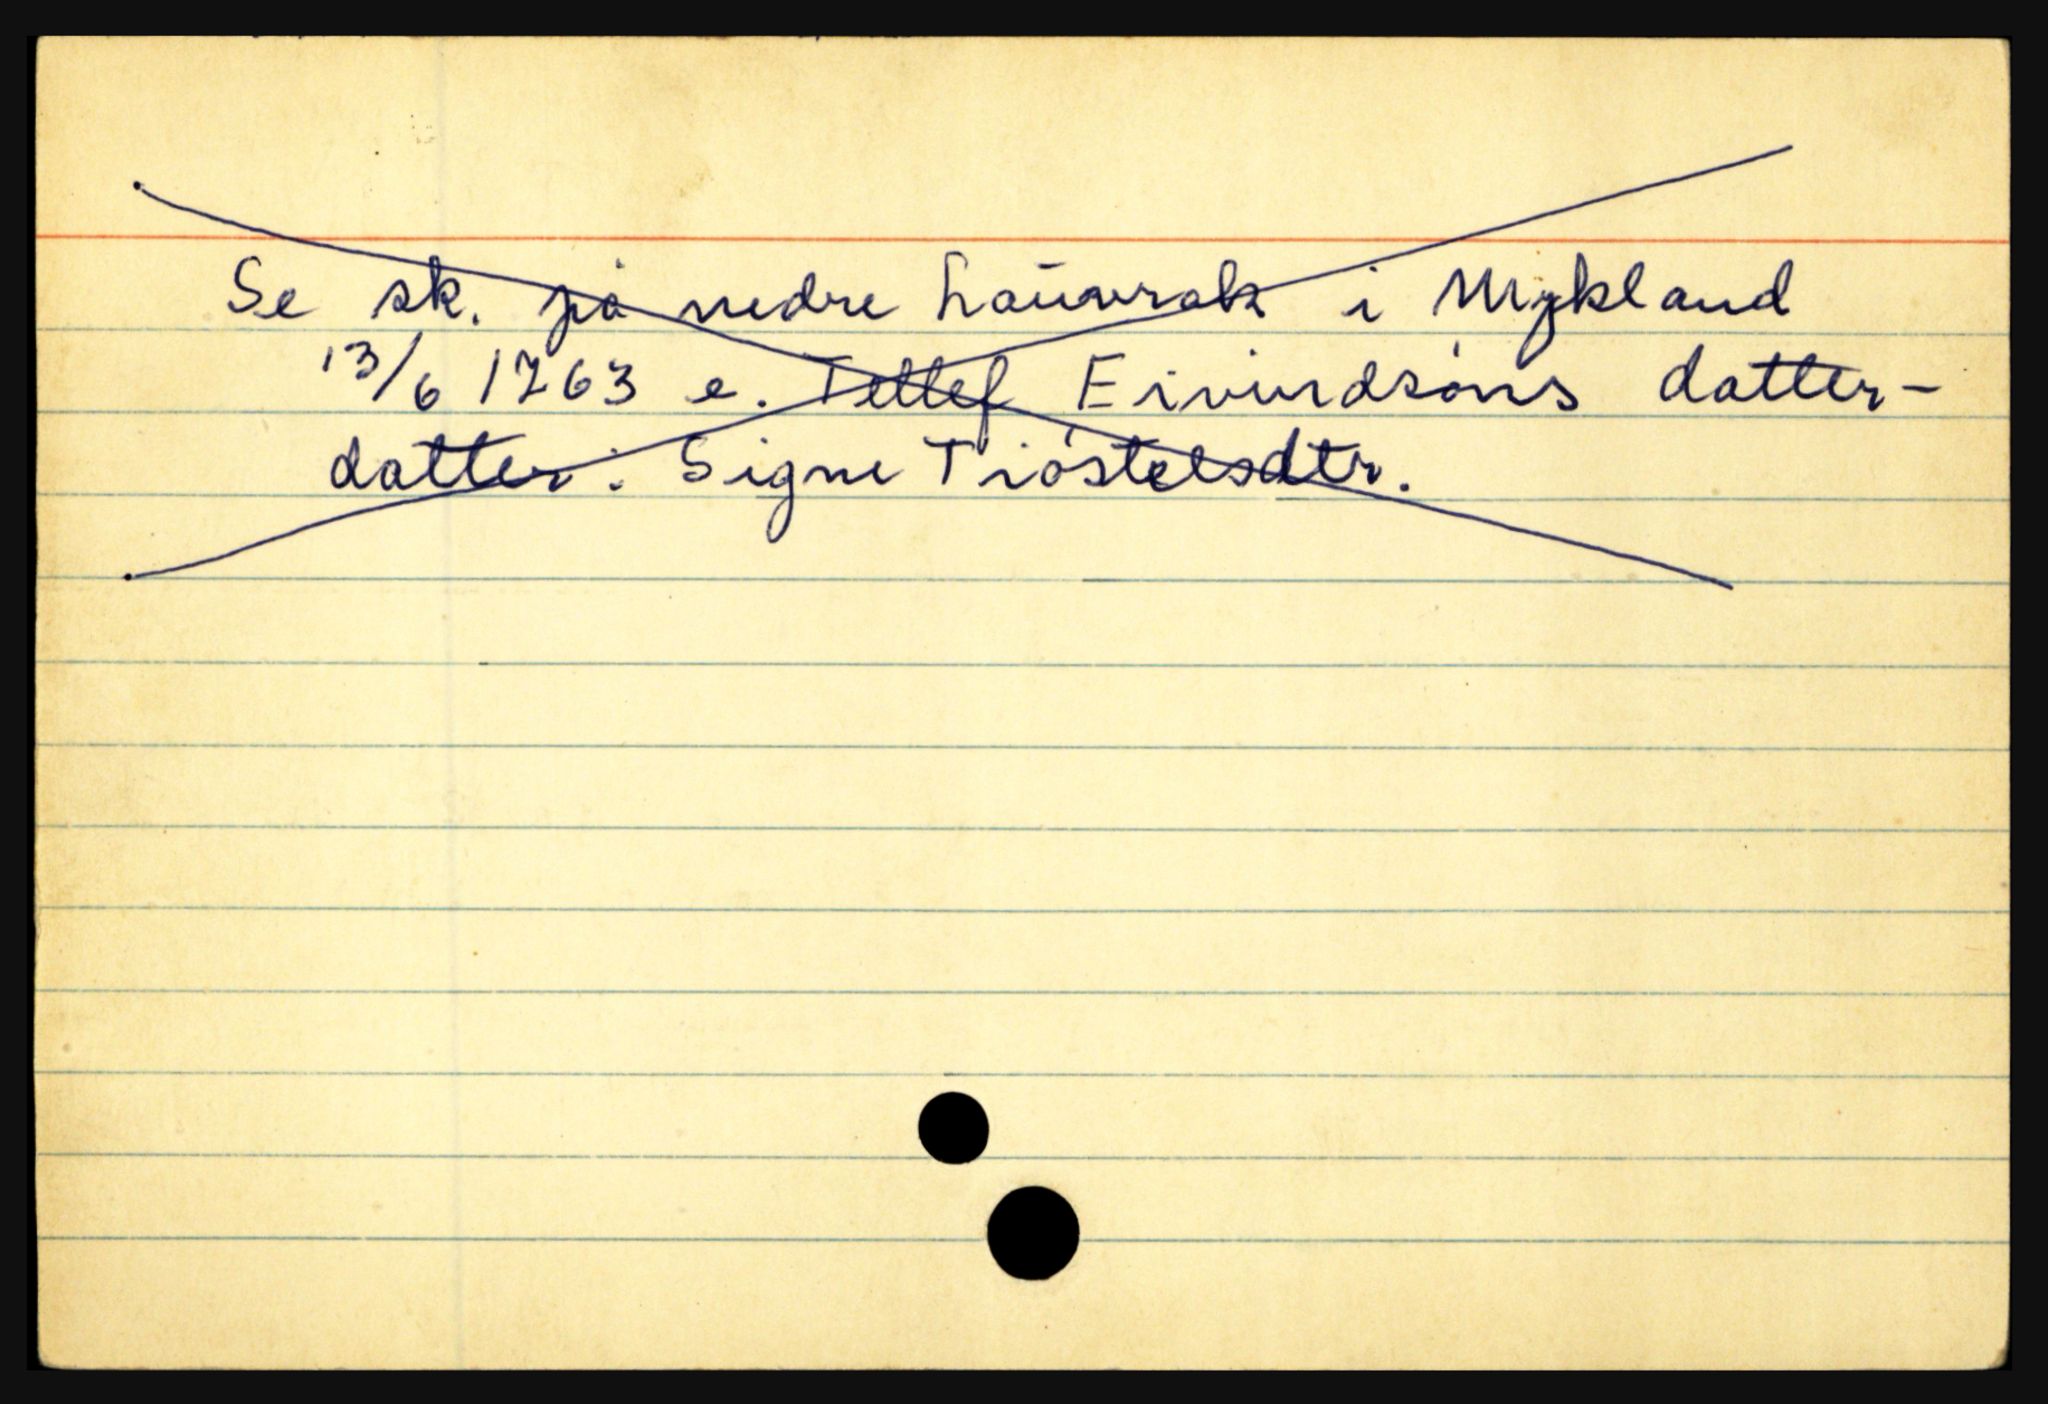 Se sk. på nedre Lauvrak i Mykland
13/6 1763 e. Tellef Eivindsøns datter-
datter: Signe Tjøstelsdtr.